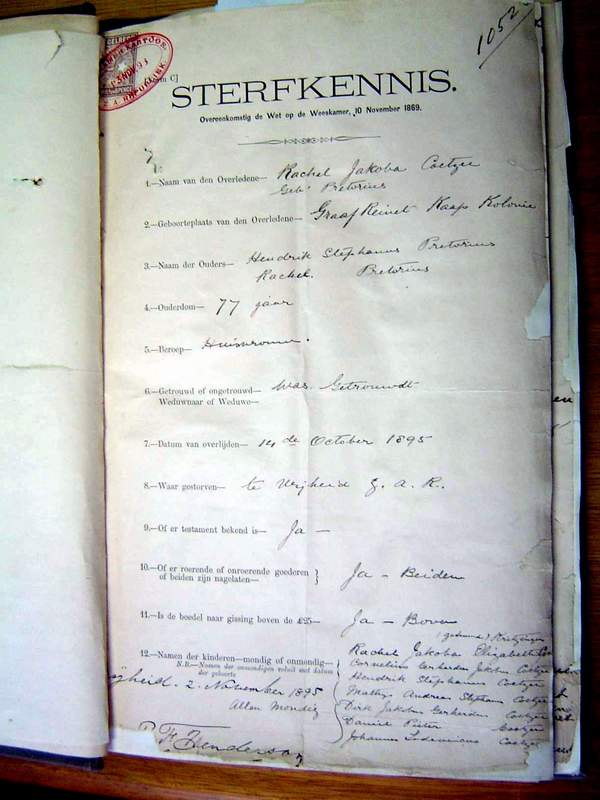 1052
C]
STERFKENNIS.
Overeenkomstig de Wet op de Weeskamer, 10 November 1869.
1.—Naam van den Overledene— Rachel Jakoba Coetzee
Geb. Pretorius
2.—Geboorteplaats van den Overledene— Graaf Reinet Kaap Kolonie
3.—Naam der Ouders— Hendrik Stephanus Pretorius
Rachel. Pretorius
4.—Ouderdom— 77 jaar
5.—Beroep— Huisvrouw.
6.—Getrouwd of ongetrouwd— Was Getrouwdt
Weduwnaar of Weduwe—
7.—Datum van overlijden— 14de October 1895
8.—Waar gestorven— te Vrijheid Z. A. R.
9.—Of er testament bekend is— Ja —
10.—Of er roerende of onroerende goederen
of beiden zijn nagelaten— } Ja — Beiden
11.—Is de boedel naar gissing boven de £25— Ja — Boven
12.—Namen der kinderen—mondig of onmondig— Rachel Jakoba Elizabeth
N.B.—Namen der onmondigen voluit met datum der geboorte
Cornelius Gerhardus Jakobus Coetzee
Hendrik Stephanus Coetzee
Mathys Andreas Stephanus Coetzee
Dirk Jakobus Gerhardus Coetzee
Daniel Pieter Coetzee
Johannes Lodewicus Coetzee
Allen Mondig
2. November 1895
Henderson